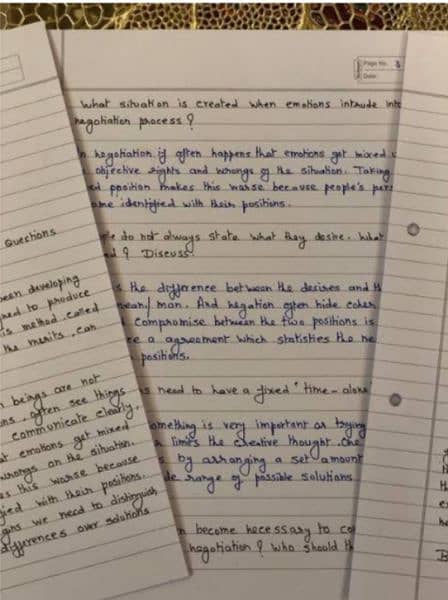 Page No. 3
Date:
What situation is created when emotions intrude into
negotiation process?
n negotiation if often happens that emotions get mixed
objective rights and wrongs of the situation. Taking
ed position makes this worse because people's
ame identified with their positions.
le do not always state what they desire. What
ed? Discuss.
s the difference between the desires and
mean/ man. And negation often hide
compromise between the two positions is
ce a agreement which statisties the ne
positions.
s need to have a fixed "time-alone
omething is very important as trying
times the creative thought. One
s by arranging a set amount
de range of possible solutions
n become necessary to co
negotiation? Who should th
Questions
een developing
ned to produce
is method called
the merits can
n beings are not
ons, often see things
communicate clearly.
at emotions get mixed
wrongs on the situation.
es this worse because
fied with their positions.
ns we need to distinguish
differences over solutions
th
e
he
B